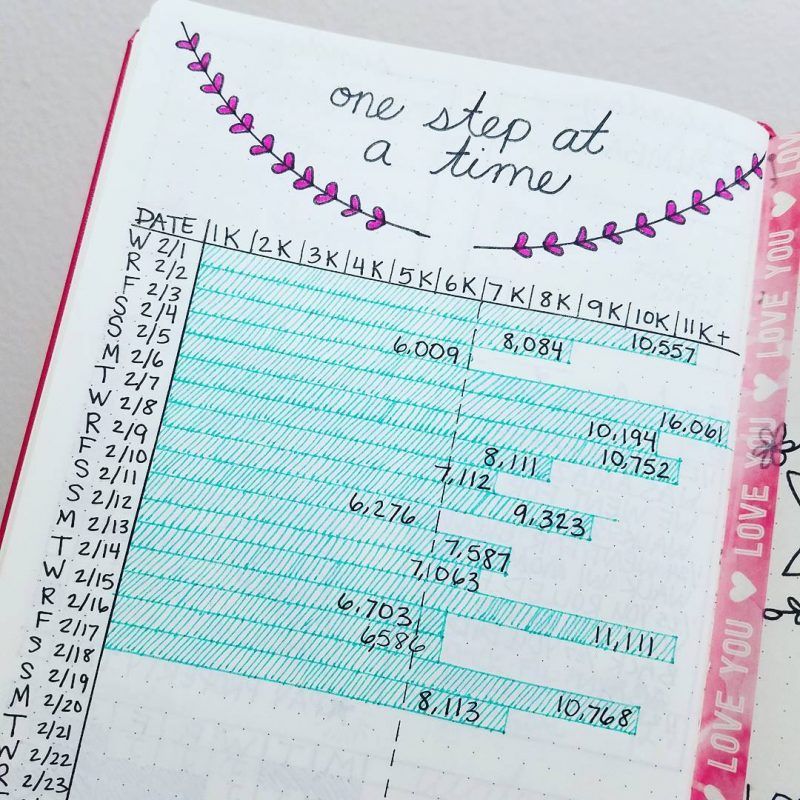 one step at
a time
DATE |1K|2K|3K|4K|5K|6K|7K|8K|9K|10K|11K+
W 2/1 10,557
R 2/2 8,084
F 2/3 6,009
S 2/4 16,061
S 2/5 10,194
M 2/6 10,752
T 2/7 8,111
W 2/8 7,112
R 2/9 9,323
F 2/10 6,276
S 2/11 7,587
S 2/12 7,063
M 2/13 11,111
T 2/14 6,703
W 2/15 6,586
R 2/16 10,768
F 2/17 8,113
S 2/18
S 2/19
M 2/20
T 2/21
W 2/22
R 2/23
LOVE YOU ♥ LOVE YOU ♥ LOVE YOU ♥ LOV